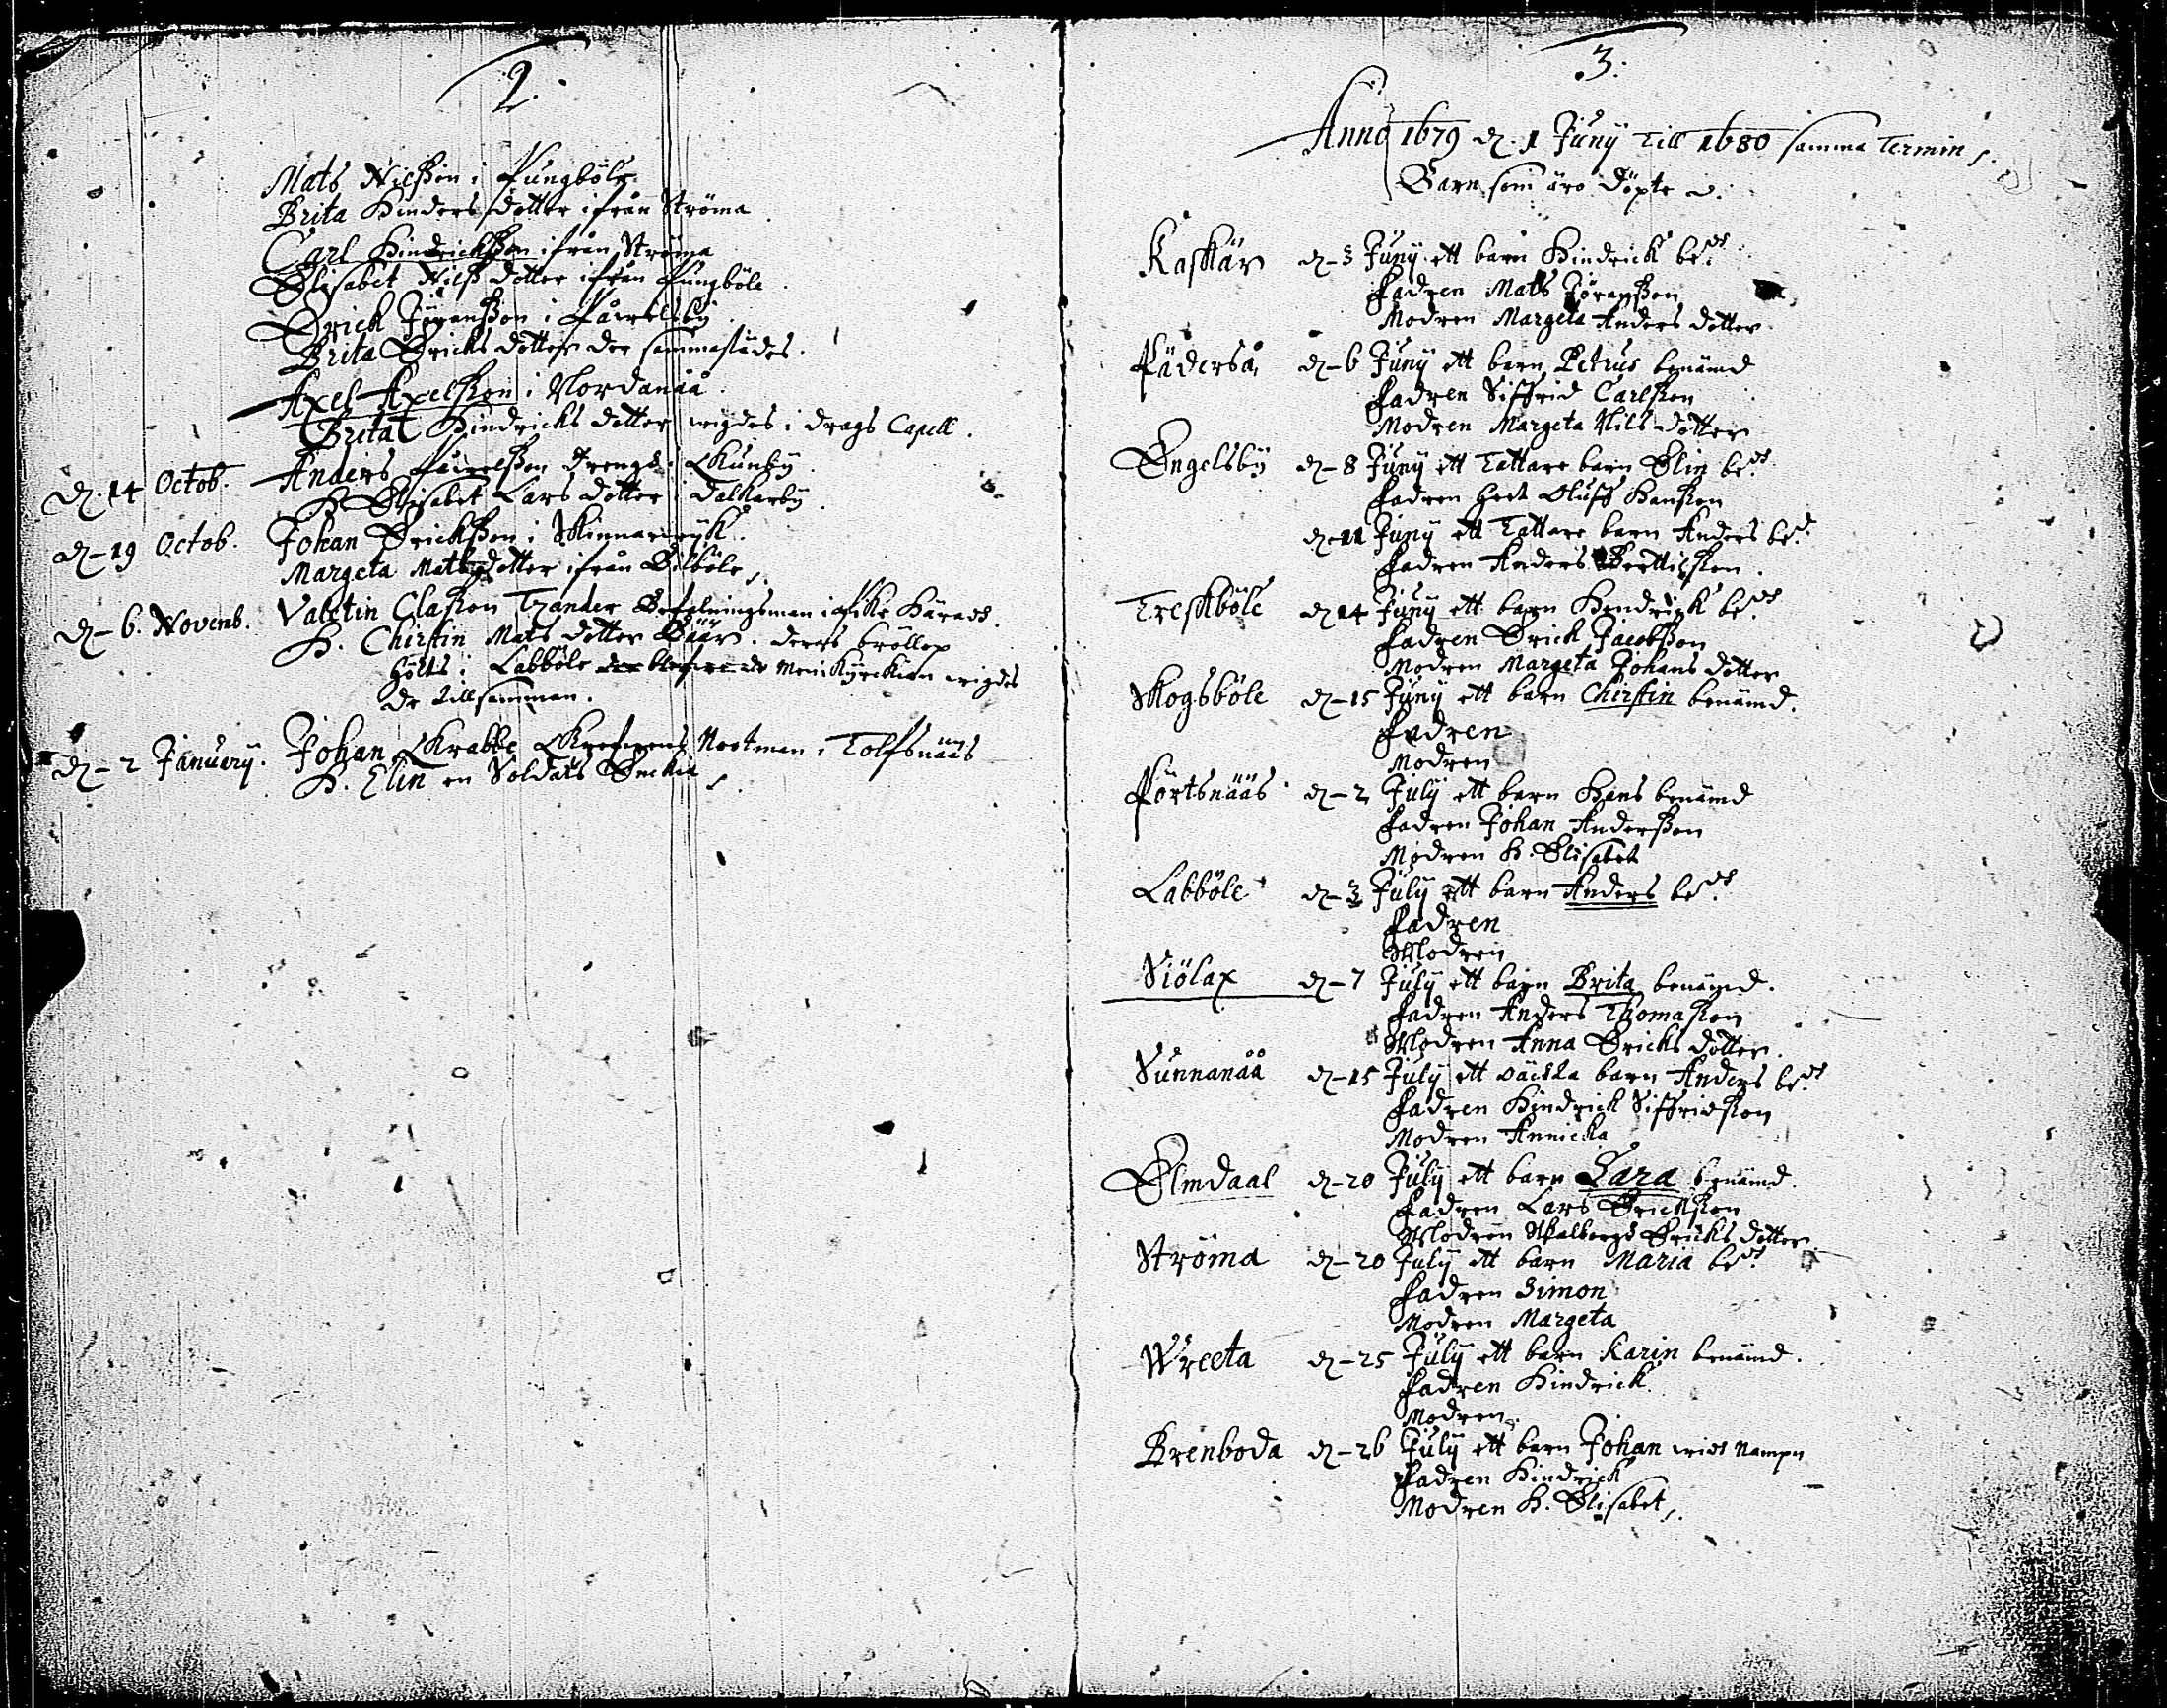 2.
Mats Nilsson i Pungböle
Brita Hinders dotter ifrån Ströma
Carl Hindricksson ifrån Ströma
Elisabet Nilss dotter ifrån Pungböle
Erick Jöransson i Påwelsby
Brita Ericks dotter der sammastädes.
Axel Axelsson i Nordanåå
Brita Hindricks dotter wigdes i Drags Capell.
D. 14 Octob. Anders Påwelsson Drengh i Skinby
H. Elisabet Lars dotter i Dalkarby
D-19 Octob. Johan Ericksson i Skinnarwijk.
Margeta Mats dotter ifrån Bilböle
D-6. Novemb. Valetin Classon Tzander Befalningsman i Härads.
H. Chirstin Mats dotter Bäär. deras bröllop
hölts i Labböle men i Kyrckian wigdes
de tillsamman.
D-2 January. Johan Krabbe Nootman i Tolfsnääs
H. Elin en Soldats Enckia
3.
Anno 1679 D. 1 Juny Till 1680 samma Termin
Barn som äro döpte
Kasskär D-3 Juny ett barn Hindrick bedt
Fadren Mats Jöransson
Modren Margeta Anders dotter
Päderså, D-6 Juny ett barn Petrus benämd
Fadren Siffrid Carlsson
Modren Margeta Nils dotter
Engelsby D-8 Juny ett Tattare barn Elin bedt
Fadren Oluff Hansson
D-11 Juny ett Tattare barn Anders bed
Fadren Anders Bertilsson.
Treskböle D14 Juny ett barn Hendrick bedt
Fadren Erick Jacobsson
Modren Margeta Johans dotter
Skogsböle D-15 Juny ett barn Chirstin benämd.
Fadren
Modren
Pörtsnääs D-2 July ett barn Hans benämd
Fadren Johan Andersson
Modren H. Elisabet
Labböle D-3 July ett barn Anders bedt
Fadren
Modren
Siölax D-7 July ett barn Brita benämd.
Fadren Anders Thomasson
Modren Anna Ericks dotter.
Sunnanåå D-15 July ett oäckta barn Anders bedt
Fadren Hindrick Siffridsson
Modren Annicka
Elmdaal D-20 July ett barn Sara benämd.
Fadren Lars Ericksson
Modren Walborgh Ericks dotter
Ströma D-20 July ett barn Maria bedt
Fadren Simon
Modren Margeta
Wreeta D-25 July ett barn Karin benämd.
Fadren Hindrick.
Modren
Brenboda D-26 July ett barn Johan widt Nampn
Fadren Hindrick
Modren H. Elisabet